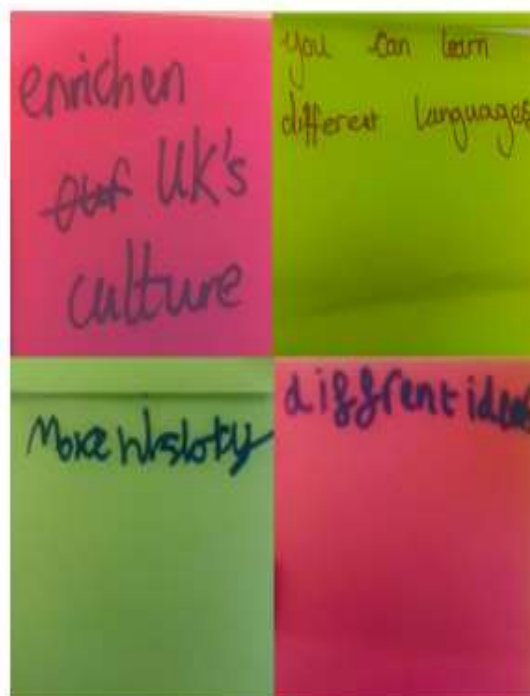 enrichen
our UK's
culture
you can learn
different languages
More history
diffrent ideas